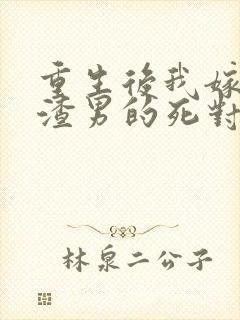 重生後我嫁
渣男的死對
林泉二公子